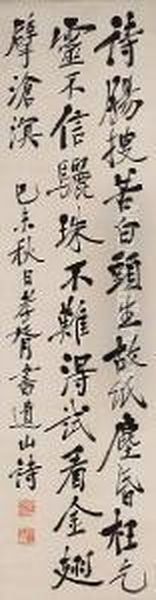 詩腸搜苦白頭生故紙塵昏枉乞
靈不信驪珠不難得試看金翅
擘滄溟
己未秋日孝胥書道山詩